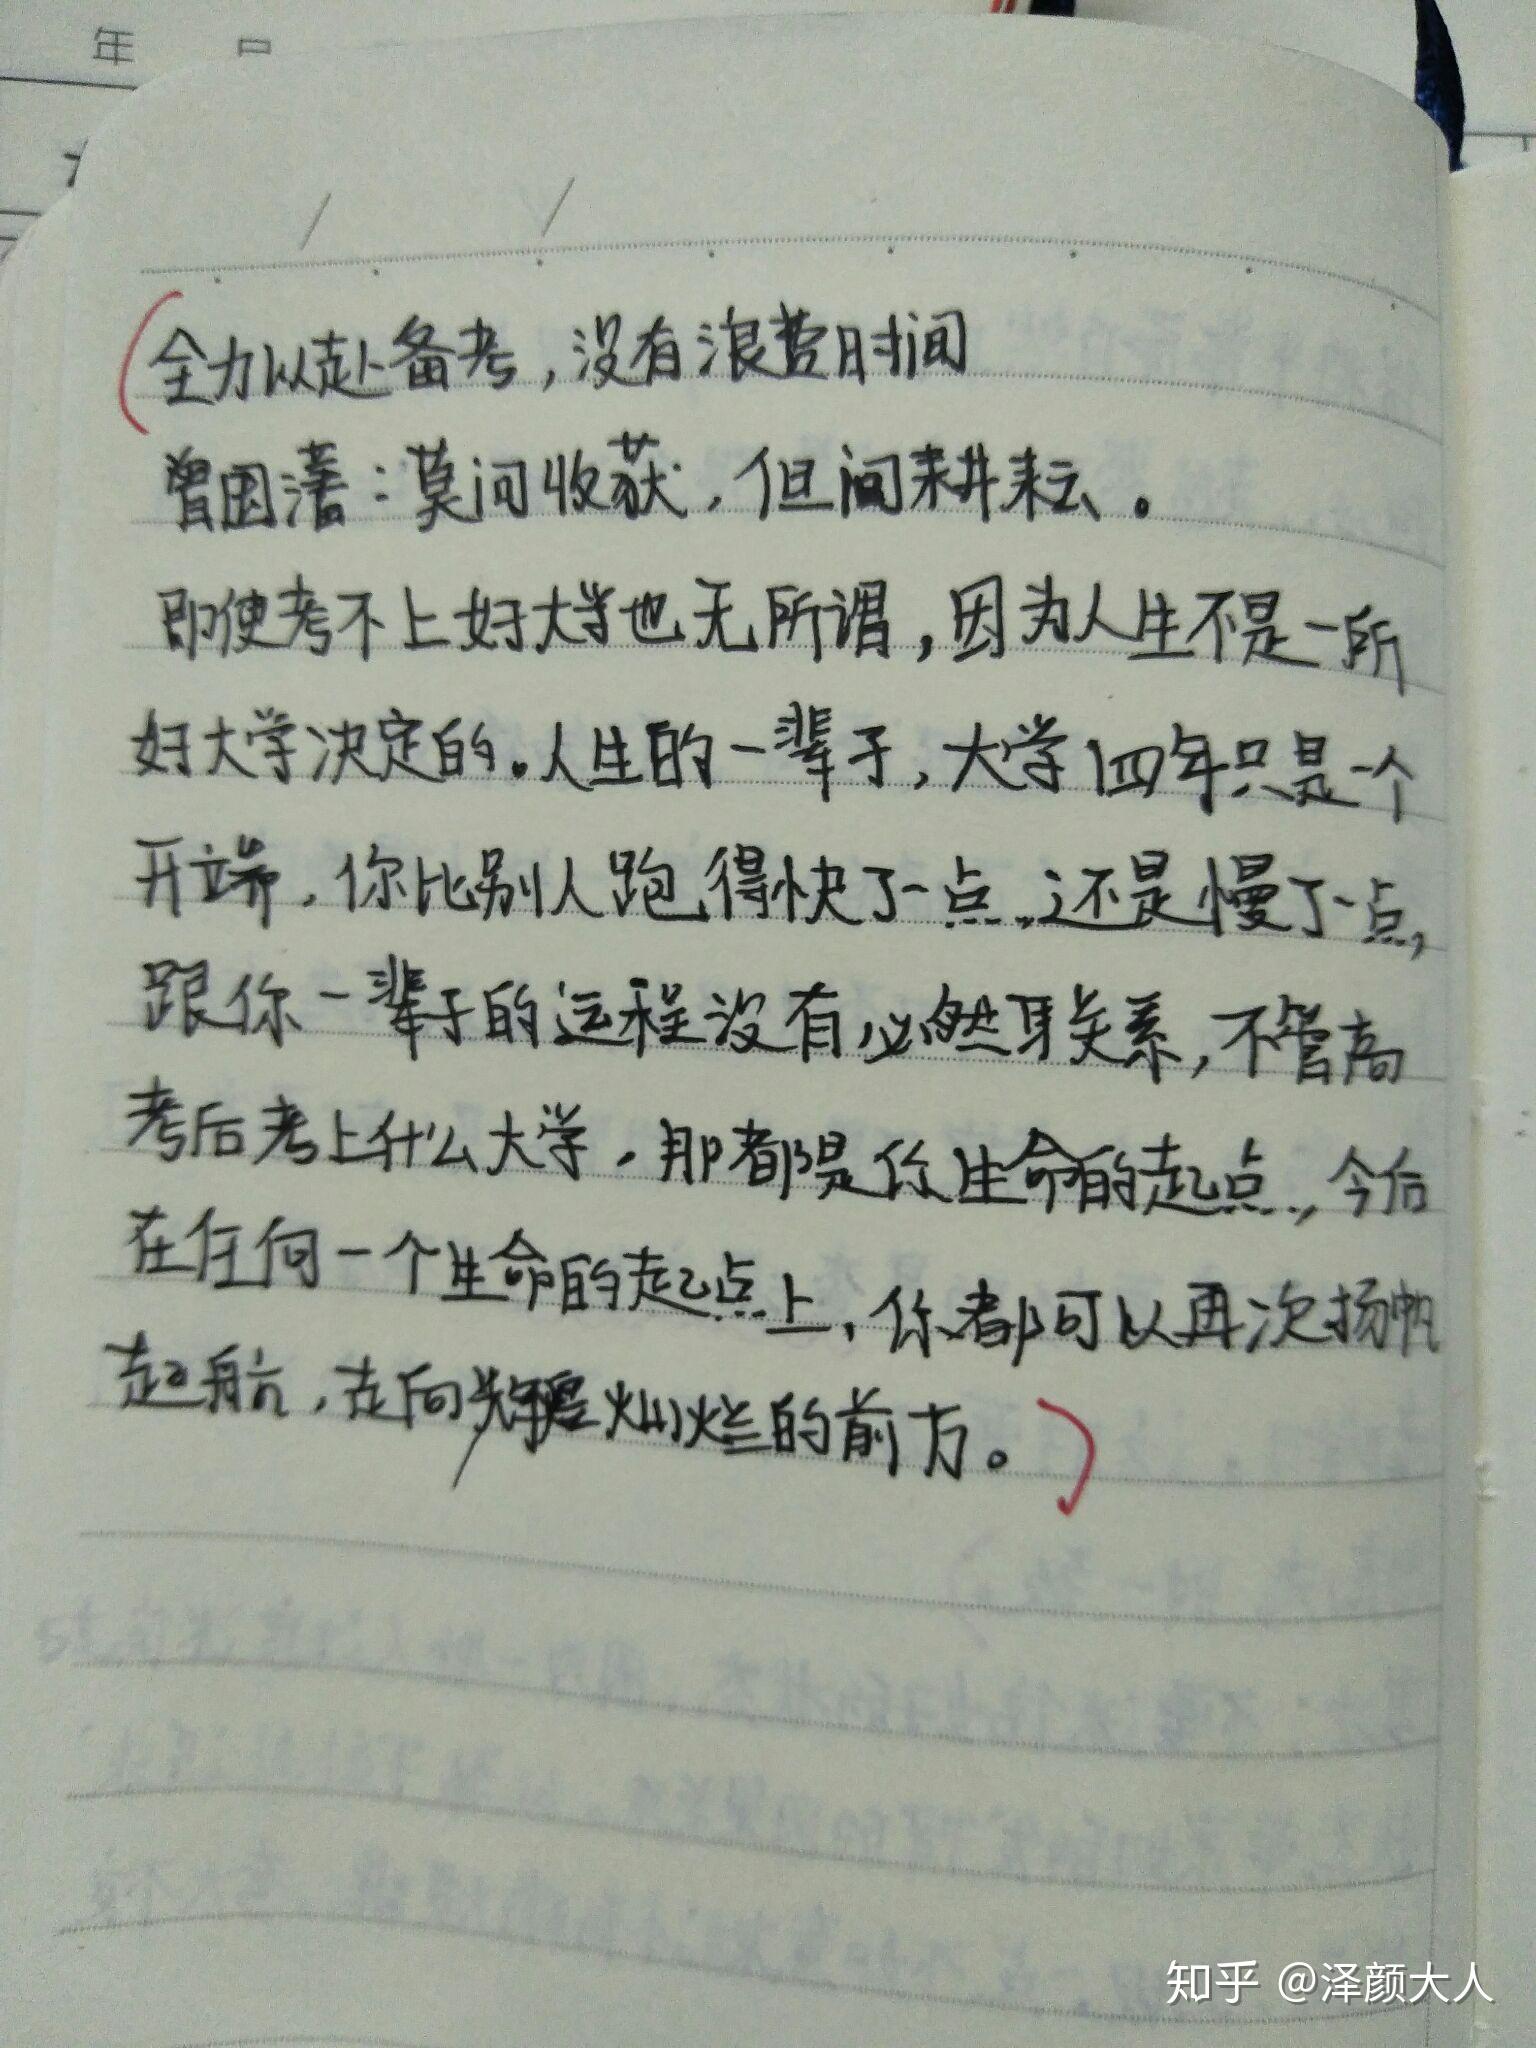 年 月
全力以赴备考，没有浪费时间
曾国藩：莫问收获，但问耕耘。
即使考不上好大学也无所谓，因为人生不是一所
好大学决定的。人生的一辈子，大学四年只是一个
开端，你比别人跑得快了一点，还是慢了一点，
跟你一辈子的远程没有必然联关系，不管高
考后考上什么大学，那都是你生命的起点，今后
在任何一个生命的起点上，你都可以再次扬帆
起航，走向辉煌灿烂的前方。
知乎 @泽颜大人